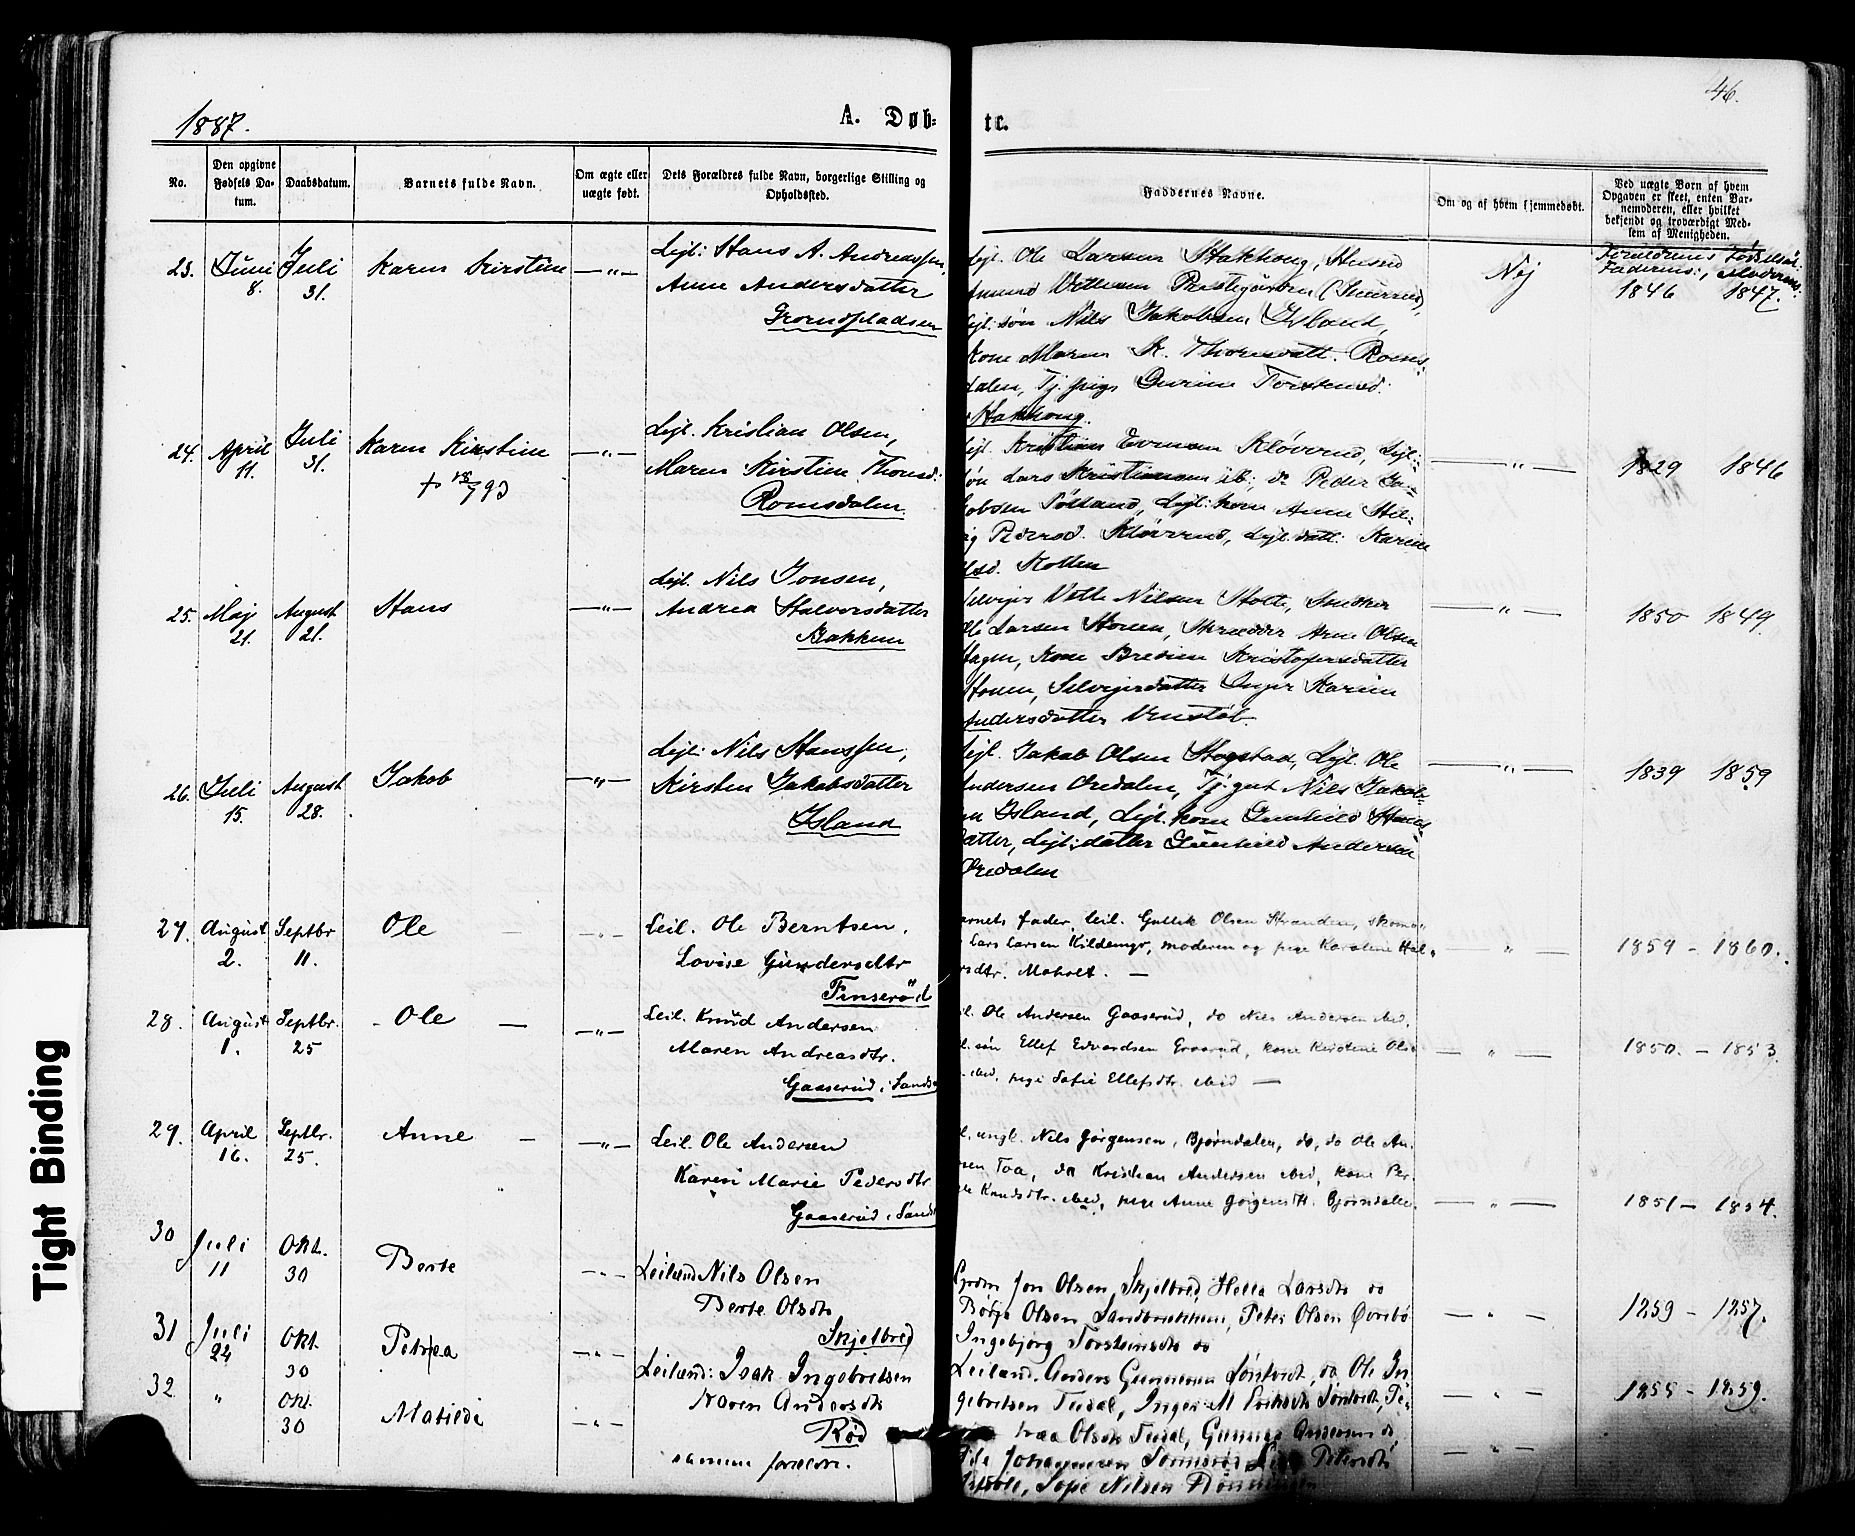 46.
1887.
A. Døb-
te.
No.
Den opgivne Fødsels Da-tum.
Daabsdatum.
Barnets fulde Navn.
Om ægte eller uægte født.
Dets Forældres fulde Navn, borgerlige Stilling og Opholdssted.
Faddernes Navne.
Om og af hvem hjemmedøbt.
Ved uægte Born af hvem Opgaven er skeet, enten Bar-nemoderen, eller hvilket bekjendt og troværdigt Med-lem af Menigheden.
Forældrenes Fødselsår:
Faderens:, Moderens:
23. Juni 8. Juli 31. Karen Kirstine —"—
Lejl: Hans A. Andreassen,
Anne Andersdatter
ejl. Ole Larsen Hakhong,
Nej
1846 1847.
ejl: søn Nils Jakobsen Island,
Kone Maren K. Thorsdatt. Roms-
dalen, Tj. pige Torstensd.
Hakhong.
24. April 11. Juli 31. Karen Kirstine —"—
+ 15/7 93
Lejl. Kristian Olsen,
Maren Kirstine Thorsd:
Romsdalen
ejl. Kristian Evensen Kløverud, Lejl:
øn Lars Kristiansen ib:, do Peder Ja-
obsen Lejl: kone Anne
Pedersd. Kløverud, Lejl. datt: Karine
lsd. Kollen
—"— 1829 1846
25. Maj 21. August 21. Hans —"—
Lejl. Nils Jonsen,
Andrea Halvorsdatter
Bakken
elvejer Nilsen Holte, Snedker
Ole Larsen Honen, Skrædder Arne Olsen
Hagen, Kone Kristofersdatter
Honen, Selvejerdatter Inger Karine
Andersdatter
—"— 1850 1849.
26. Juli 15. August 28. Jakob —"—
Lejl: Nils Hanssen,
Kirsten Jakobsdatter
Island
ejl. Jakob Olsen Hogstad, Lejl. Ole
Andersen Oredalen, Tj. gut Nils Jakob-
en Island, Lejl. kone Gunhild Hans-
datter, Lejl: datter Gunhild Andersen
Oredalen
—"— 1839 1859
27. August 2. Septbr 11. Ole — —"—
Leil. Ole Berntsen.
Lovise Gundersdtr
Finserød
arnets fader, leil. Gullik Olsen Stranden, skoma-
Lars Larsen Kildemyr, moderen og pige Karoline Hal-
rsdtr. Moholt. —
—"— 1859 - 1860.
28. August 1. Septbr. 25 - Ole — —"—
Leil. Knud Andersen
Maren Andreasdtr.
Gaaserud i Sands
l. Ole Andersen Gaaserud, do Nils Andersen ibid.
l. søn Ellef Edvardsen Graarud, kone Kirstine Ols
ibid, pige Sofie Ellefsdtr. ibid —
—"— 1850. - 1853.
29. April 16. Septbr. 25. Anne — —"—
Leil. Ole Andersen
Karen Marie Pedersdtr.
Gaaserud i Sands
l. ungk. Nils Jørgensen, Bjørndalen, do, do Ole An-
rsen Toa, do Kristian Andersen ibid, kone Ber-
Knudsdtr. ibid, pige Anne Jørgensdtt. Bjørndalen
—"— 1851 - 1854.
30 Juli 11 Okt. 30 Berte —"—
Leilænd Nils Olsen
Berte Olsdtr
Skjelbred
Jon Olsen Skjelbred, Helle Larsdtr do
Børge Olsen Sandbrekkene, Peter Olsen Øvrebø
Ingebjørg Torsteinsdtr do
—"— 1859 - 1857.
31 Juli 24 Okt. 30 Petrea —"—
Leilænd: Isak Ingebretsen
Maren Andersdtr
Rød
Leilænd. Anders Gunnersen do, Ole In-
gebretsen Teidal, Inger M. Eriksdtr Pe-
traa Olsdtr Teidal, Gunnar Andersen do
—"— 1855 - 1859.
32 " Okt. 30 Matilde —"—
samme foreldre.
Johannesen Petersdtr
Sofie Nilsen
—"—
Tight Binding